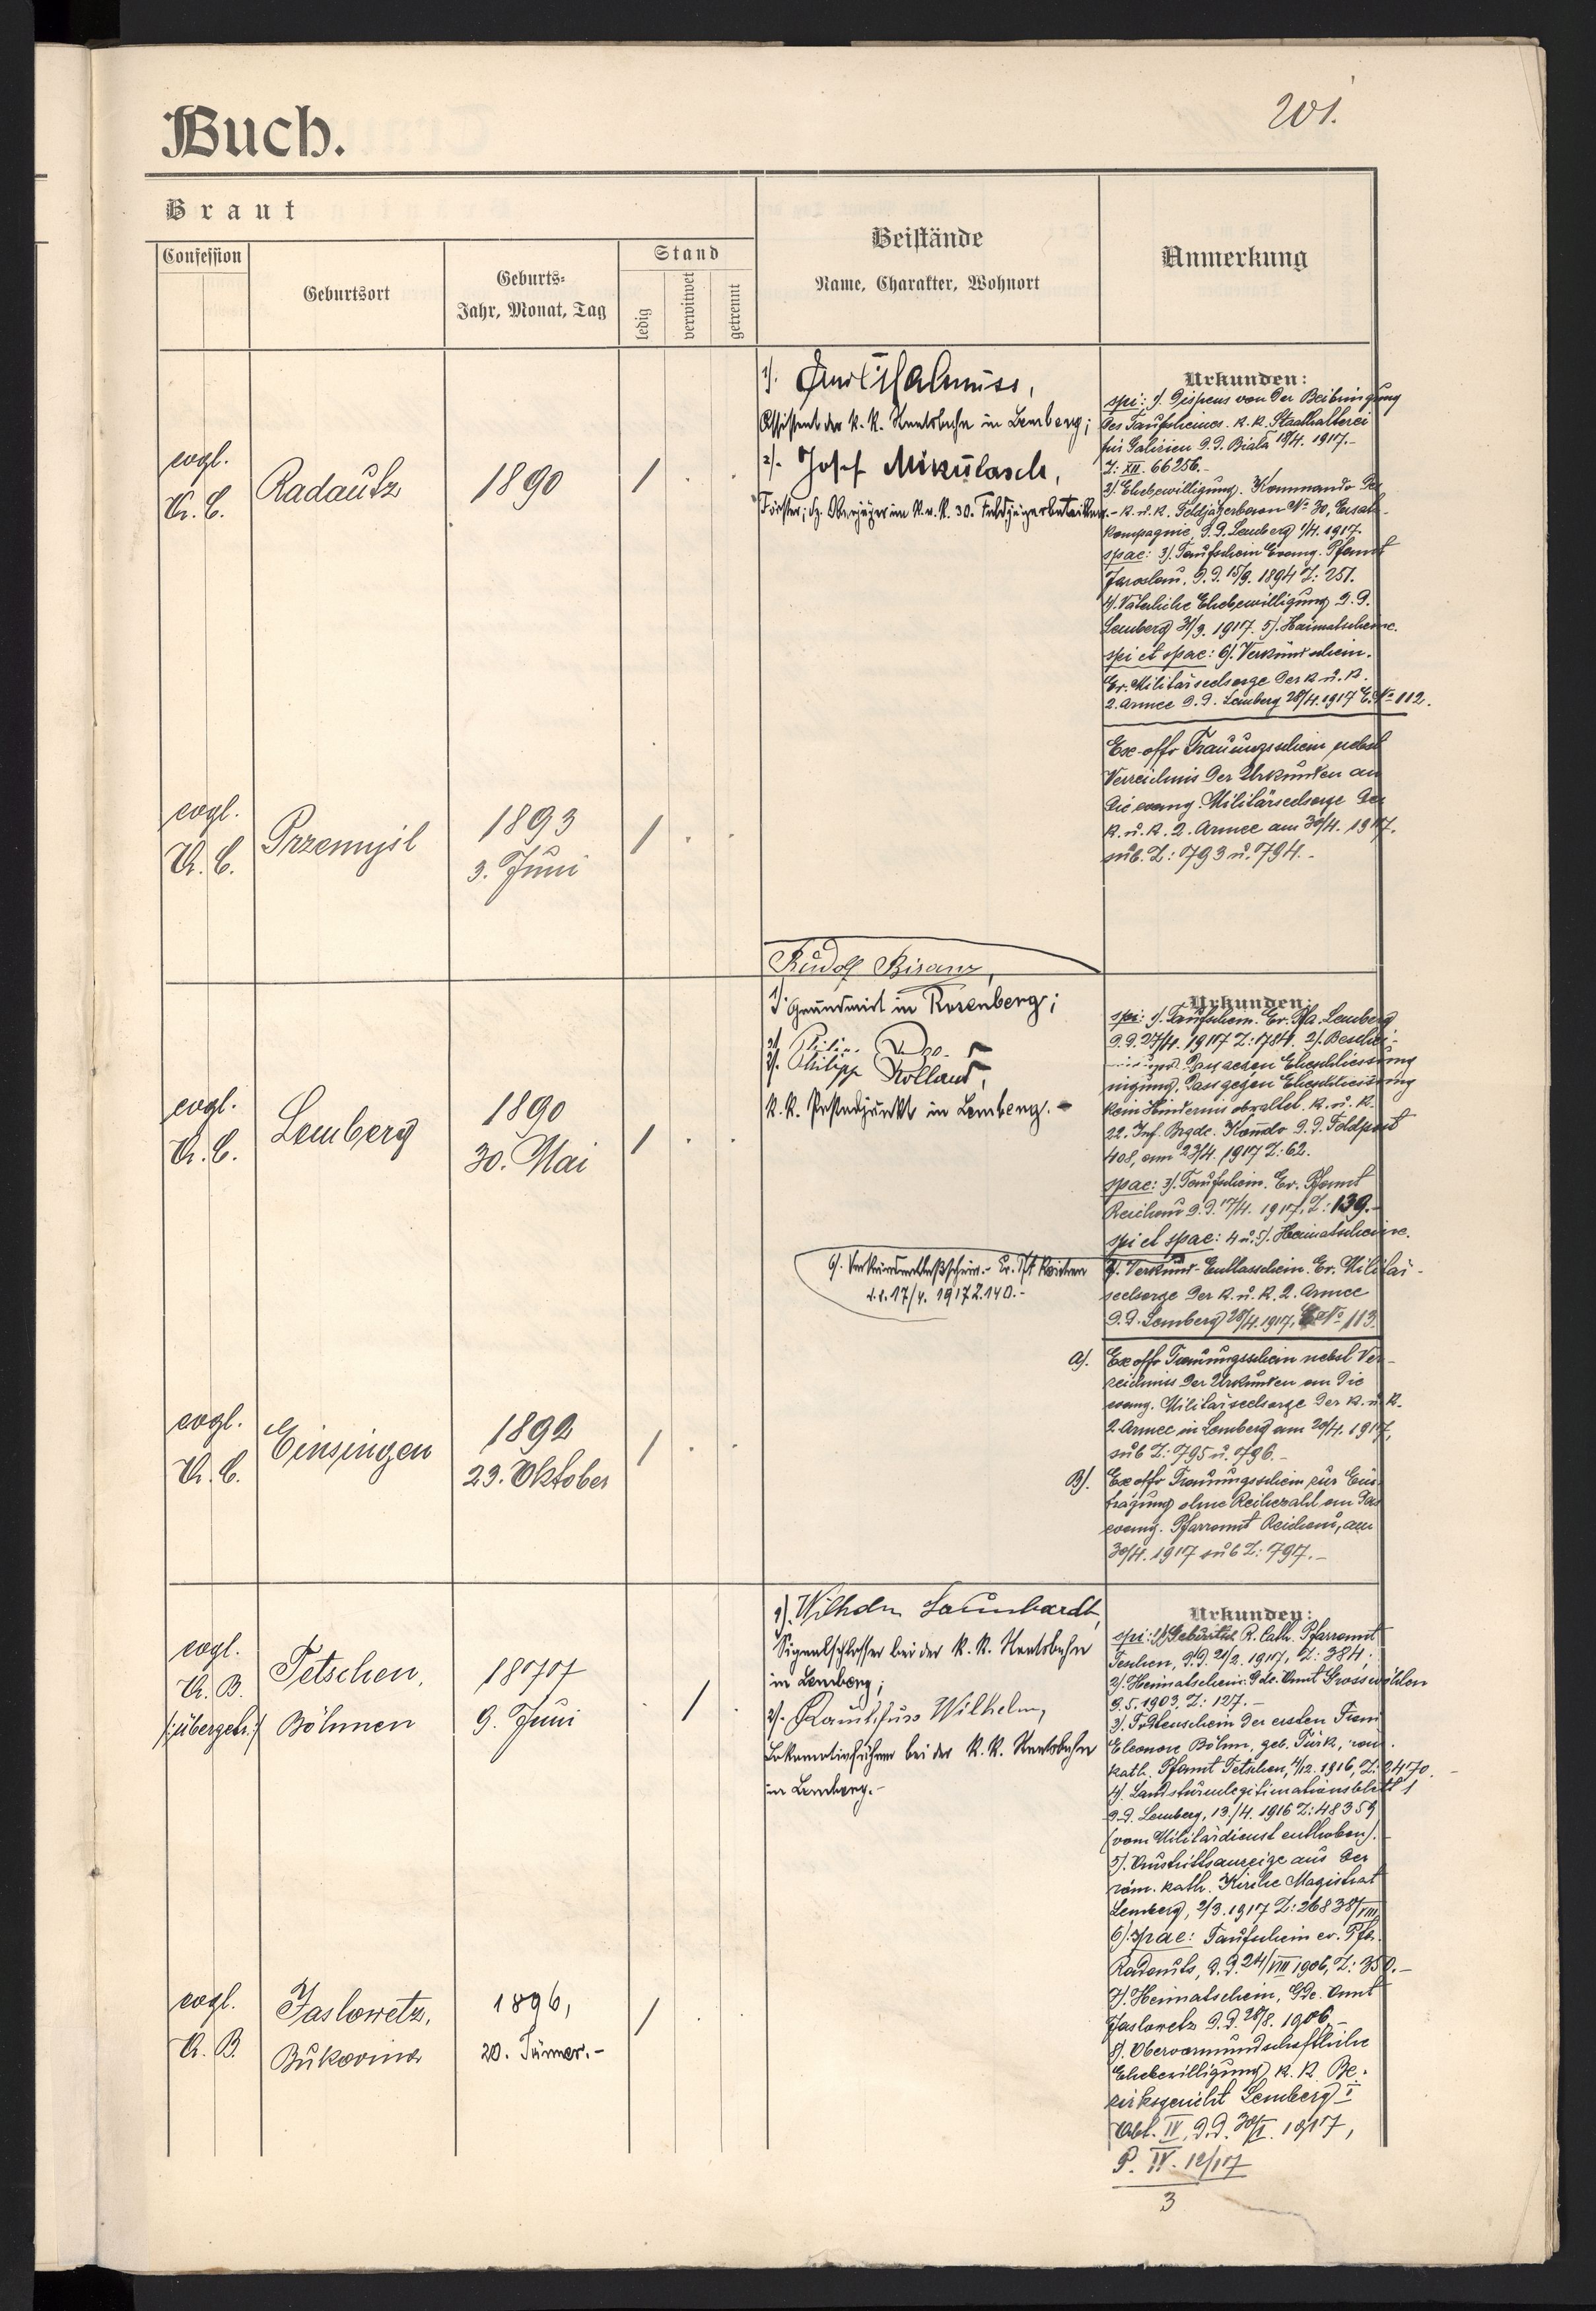 201.
Buch.
Braut
Confession
Geburtsort
Geburts-
Jahr, Monat, Tag
Stand
ledig
verwitwet
getrennt
Beistände
Name, Charakter, Wohnort
Anmerkung
evgl.
A. C.
Radautz
1890
1).
Assistent der k. k. Staatsbahn in Lemberg;
2). Josef Mikulasch,
Förster, dz. Oberjäger im k. u. k. 30. Feldjägerbataillon.-
Urkunden:
spi: 1). Dispens von der Beibringung
des Taufscheines. k. k. Statthalterei
für Galizien d. d. Biala 18/4. 1917.-
Z: XII. 66256.-
2). Ehebewilligung. Kommando des
k. u. k. Feldjägerbaon No 30, Ersatz-
kompagnie, d. d. Lemberg 1/4. 1917.
spae: 3). Taufschein Evang. Pfarramt
Jaroslau. d. d. 15/9. 1894 Z: 251.
4). Väterliche Ehebewilligung d. d.
Lemberg 31/3. 1917. 5). Heimatscheine.
spi et spae: 6). Verkündschein.
Ev. Militärseelsorge der k. u. k.
2. Armee d. d. Lemberg 28/4. 1917 E. No 112.
evgl.
A. C.
Przemysl
1893
3. Juni
Ex offo Trauungsschein nebst
Verzeichnis der Urkunden an
die evang. Militärseelsorge der
k. u. k. 2. Armee am 30/4. 1917.
sub. Z: 793 u. 794.-
Rudolf Bisanz,
1). Grundwirt in Rosenberg;
2). Philipp Kolland,
k. k. Postadjunkt in Lemberg.-
evgl.
A. C.
Lemberg
1890
30. Mai
Urkunden:
spi: 1). Taufschein. Ev. Pfa. Lemberg
d. d. 27/4. 1917 Z: 1784. 2). Beschei-
nigung, dass gegen Eheschliessung
kein Hindernis obwaltet. k. u. k.
22. Inf. Brgde. Komdo d. d. Feldpost
408, am 23/4. 1917 Z: 62.
spae: 3). Taufschein. Ev. Pfarramt
Reichau d. d. 17/4. 1917, Z: 139.-
spi et spae: 4 u. 5). Heimatscheine.
6). Verkündentlaßschein.- Ev. Pfa Reichau
d. d. 17/4. 1917 Z. 140.-
7). Verkünd-Entlasschein. Ev. Militär-
seelsorge der k. u. k. 2. Armee
d. d. Lemberg 28/4. 1917, No 113.
evgl.
A. C.
Einsingen
1892
23. Oktober
A). Ex offo Trauungsschein nebst Ver-
zeichnis der Urkunden an die
evang. Militärseelsorge der k. u. k.
2. Armee in Lemberg am 20/4. 1917,
sub Z: 795 u. 796.-
B). Ex offo Trauungsschein zur Ein-
tragung ohne Reihezahl an das
evang. Pfarramt Reichau, am
30/4. 1917 sub Z: 797.-
evgl.
A. B.
/:übergetr:/
Tetschen,
Böhmen
1877
9. Juni
1). Wilhelm Launhardt,
Signalschlosser bei der k. k. Staatsbahn
in Lemberg;
2). Wilhelm,
Lokomotivführer bei der k. k. Staatsbahn
in Lemberg.-
Urkunden:
spi: 1) R. Cath. Pfarramt
Teschen, d. d. 21/2. 1917, Z: 384;
2). Heimatschein: Gde. Amt
9. 5. 1903, Z: 127.-
3). Todtenschein der ersten Frau
Eleonore Böhm, geb. Türk, röm.
kath. Pfamt Tetschen, 4/12. 1916, Z: 2470.-
4). Landsturmlegitimationsblatt 1
d. d. Lemberg, 13./4. 1916 Z: 48359
(vom Militärdienst enthoben).-
5). Austrittsanzeige aus der
röm. kath. Kirche Magistrat
Lemberg, 2/3. 1917 Z: 26838/VIII,
6). spae: Taufschein ev. Pfa.
Radautz, d. d. 24/VIII 1906, Z: 350.-
7). Heimatschein, Gde. Amt
Jaslowetz d. d. 28/8. 1906.-
8). Obervormundschaftliche
Ehebewilligung k. k. Be-
zirksgericht Lemberg I
Abt. IV, d. d. 30/I. 1917,
P. IV. 12/17
3
evgl.
A. B.
Jaslowetz,
Bukowina
1896,
20. Jänner.-